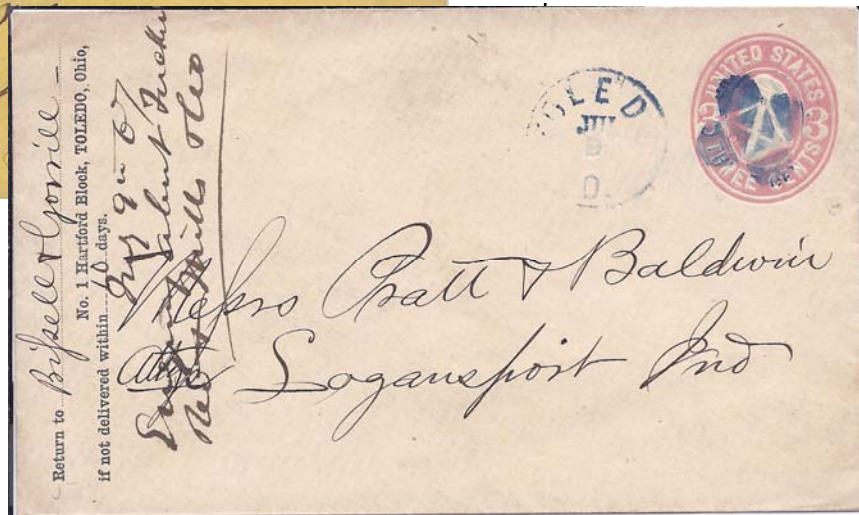 Return to Bissell & Gorrill
No. 1 Hartford Block, TOLEDO, Ohio,
if not delivered within 60 days.
Mills Ohio
TOLED
JUL
O.
UNITED STATES
3 3
THREE CENTS
Messrs Pratt & Baldwin
Attys Logansport Ind